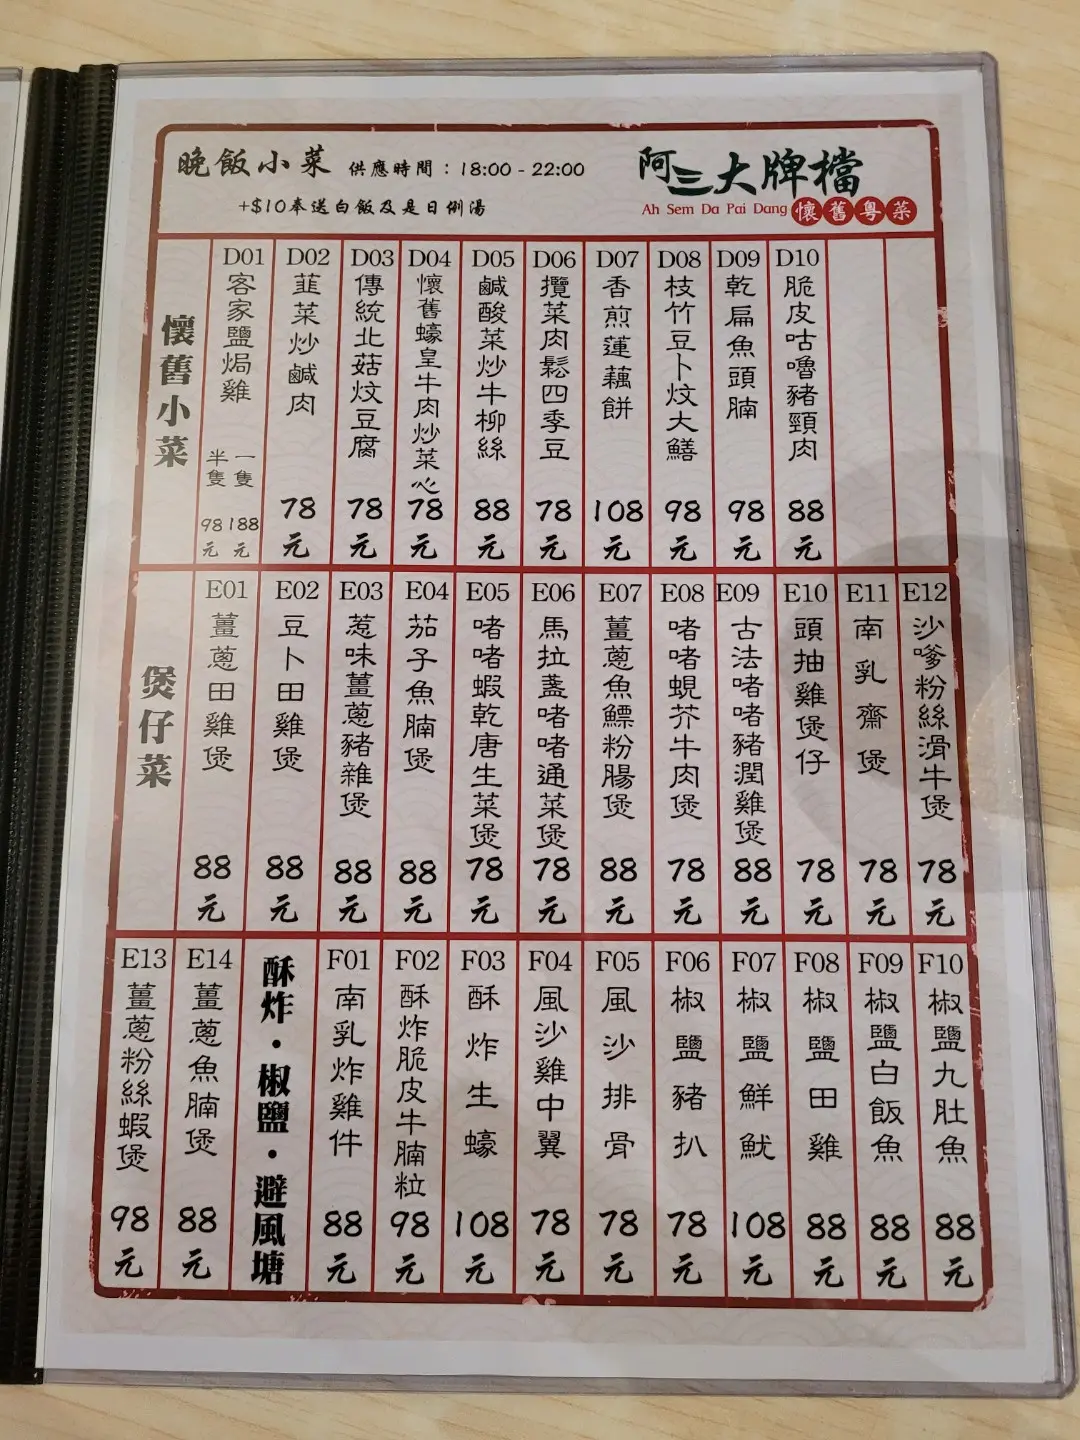 晚飯小菜 供應時間：18:00 - 22:00
+$10奉送白飯及是日例湯
阿三大牌檔
Ah Sem Da Pai Dang 懷舊粵菜
懷舊小菜
D01 客家鹽焗雞 半隻 98元 一隻 188元
D02 韮菜炒鹹肉 78元
D03 傳統北菇炆豆腐 78元
D04 懷舊蠔皇牛肉炒菜心 78元
D05 鹹酸菜炒牛柳絲 88元
D06 攬菜肉鬆四季豆 78元
D07 香煎蓮藕餅 108元
D08 枝竹豆卜炆大鱔 98元
D09 乾扁魚頭腩 98元
D10 脆皮咕嚕豬頸肉 88元
煲仔菜
E01 薑蔥田雞煲 88元
E02 豆卜田雞煲 88元
E03 葱味薑蔥豬雜煲 88元
E04 茄子魚腩煲 88元
E05 啫啫蝦乾唐生菜煲 78元
E06 馬拉盞啫啫通菜煲 78元
E07 薑蔥魚鰾粉腸煲 88元
E08 啫啫蜆芥牛肉煲 78元
E09 古法啫啫豬潤雞煲 88元
E10 頭抽雞煲仔 78元
E11 南乳齋煲 78元
E12 沙嗲粉絲滑牛煲 78元
E13 薑蔥粉絲蝦煲 98元
E14 薑蔥魚腩煲 88元
酥炸·椒鹽·避風塘
F01 南乳炸雞件 88元
F02 酥炸脆皮牛腩粒 98元
F03 酥炸生蠔 108元
F04 風沙雞中翼 78元
F05 風沙排骨 78元
F06 椒鹽豬扒 78元
F07 椒鹽鮮魷 108元
F08 椒鹽田雞 88元
F09 椒鹽白飯魚 88元
F10 椒鹽九肚魚 88元